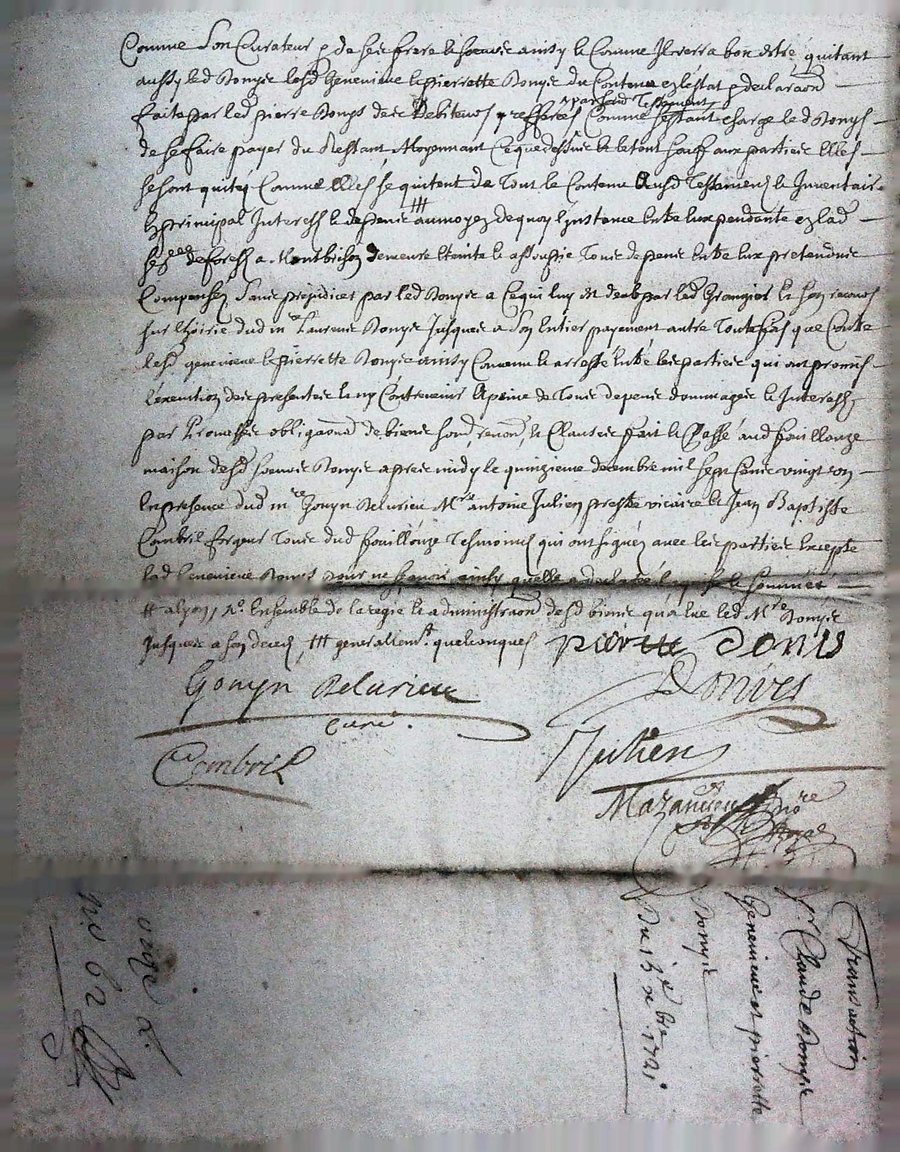 Comme son Curateur & de ses frere & soeurs ainsy & Comme Il verra bon estre quitant
aussy led Donys lesd Genevieve & pierrette Donys du Contenu en lestat & declaraon
faite par led pierre Donys des Debiteurs Comme sestant charge led Donys
par sond Testament
de se faire payer du Restant Moyennant Ce que dessus & le tout sauf aux parties Elles
se sont quitey Comme Elles se quitent de Tout le Contenu Ausd Testament & Inventaire
En principal Interests & depens # au moyen de quoy l'instance Entre Eux pendante en lad
de forests a Montbrison demeure Eteinte & assoupie Tous depens Entre Eux pretendus
Compensez Sans prejudice par led Donys a Ce qui luy est deub par led Grangier & son recours
sur l'hoirie dud mre Laurens Donys Jusques a son Entier payement autre Toutefois que Contre
lesd genevieve & pierrette Donys ainsy Convenu & arresté Entre les parties qui ont promis
l'execution des presentes & ny Contrevenir A peine de Tous depens dommages & Interests
par Promesses obligaons de biens renon & Clauses fait & Passé aud fouillouze
maison desd Donys apres midy le quinzieme decembre mil sept Cens vingt un
En presence dud mre Gouyn Delurieu Mre antoine Julien prestre vicaire & Jean Baptiste
Combril forgeur Tous dud fouillouze Tesmoins qui ont signez avec les parties Excepte
lad Genevieve Donys pour ne sçavoir ainsy quelle a declaré Enquis & sommés
# Ensemble de la regie & administraon desd biens qua Eue led Mre Donys
Jusques a son deces, ### generallemt quelconques pierre donis
Gouyn Delurieu Donives
Curé.
Combril Julien
Mazancieu nore
Royal
Transaction
Sr Claude Donys
Genevieve et pierrette
Donys
Du 15e xbre 1721
no 62